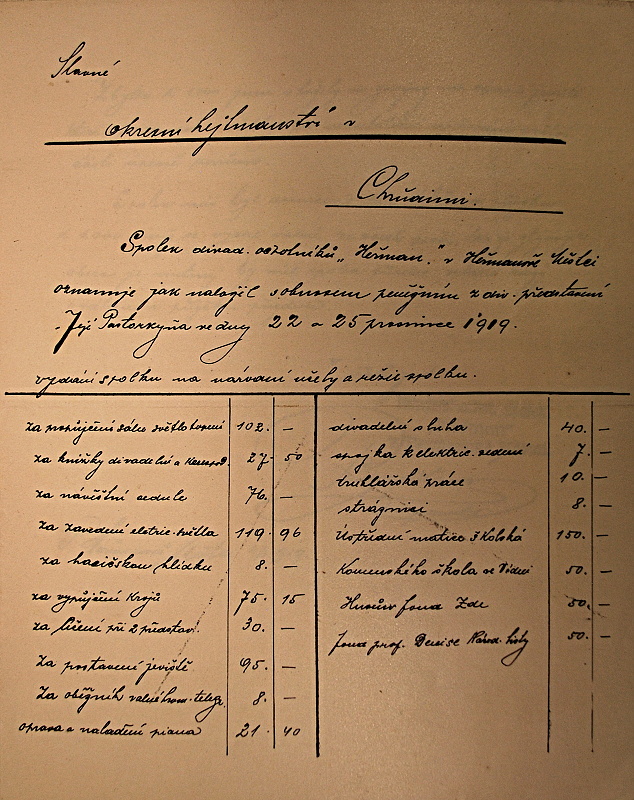 Slavné
okresní hejtmanství v
Chrudimi.
Spolek divad. ochotníků „Heřman." v Heřmanově Městci
oznamuje jak naložil s obnosem peněžním z div. představení
„Její Pastorkyňa ve dny 22 a 25 prosince 1919.
vydání spolku na národní účely a režie spolku.
za propůjčení sálu světlo topení 102. —
za knížky divadelní a 27- 50
za návěštní cedule 76. —
za zavedení eletric. světla 119. 96
za hasičskou hlídku 8. —
za vypůjčení Krojů 75. 15
za líčení při 2 představ. 30. —
za postavení jeviště 95. —
za oběžník valné hrom. teleg. 8. —
oprava a naladění piana 21. 40
divadelní sluha 40. —
spojka k elektric. vedení 7. —
truhlářské práce 10. —
strážníci 8. —
Ústřední matice školská 150. —
Komenského škola ve Vídni 50. —
Husův fond Zde 50. —
fond prof. Denise Národ. listy 50. —